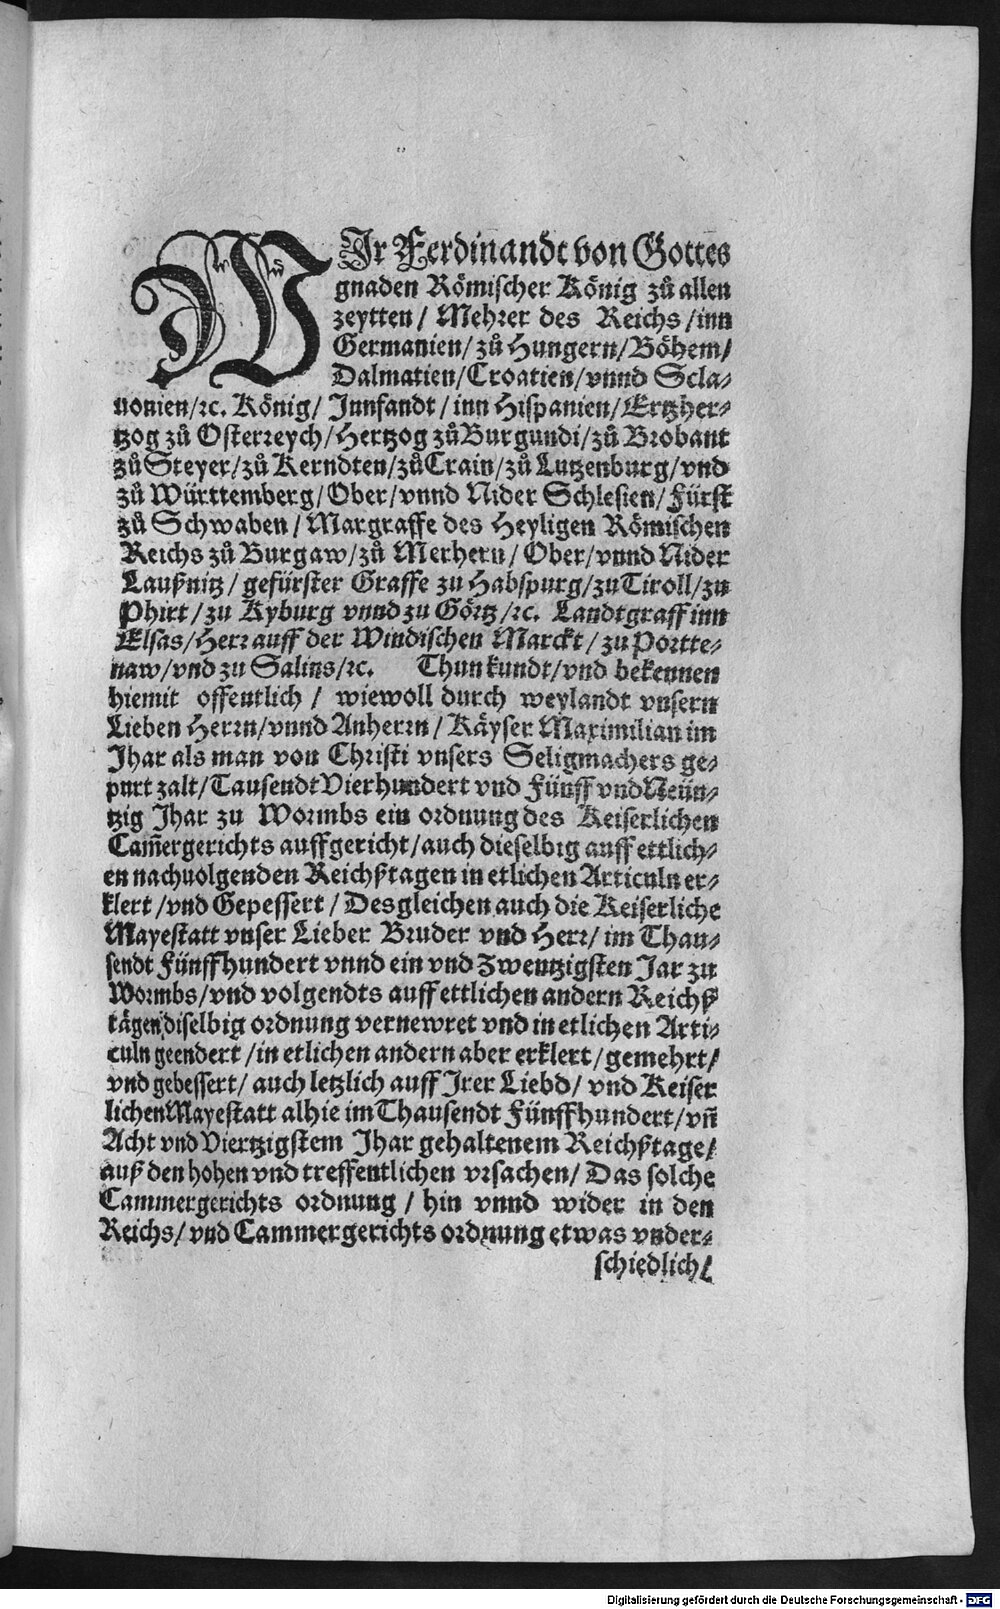 WIr Ferdinandt von Gottes
gnaden Römischer König zů allen
zeytten / Mehrer des Reichs / inn
Germanien / zů Hungern / Böhem /
Dalmatien / Croatien / vnnd Scla⸗
uonien / ꝛc. König / Innfandt / inn Hispanien / Ertzher⸗
tzog zů Osterreych / Hertzog zů Burgundi / zů Brobant
zů Steyer / zů Kerndten / zů Crain / zů Lutzenburg / vnd
zů Württemberg / Ober / vnnd Nider Schlesien / Fürst
zů Schwaben / Margraffe des Heyligen Römischen
Reichs zů Burgaw / zů Merhern / Ober / vnnd Nider
Laußnitz / gefürster Graffe zu Habspurg / zu Tiroll / zu
Phirt / zu Kyburg vnnd zu Görtz / ꝛc. Landtgraff inn
Elsas / Herr auff der Windischen Marckt / zu Portte⸗
naw / vnd zu Salins / ꝛc. Thun kundt / vnd bekennen
hiemit offentlich / wiewoll durch weylandt vnsern
Lieben Herrn / vnnd Anherrn / Käyser Maximilian im
Jhar als man von Christi vnsers Seligmachers ge⸗
purt zalt / Tausendt Vierhundert vnd Fünff vnd Neün⸗
tzig Jhar zu Wormbs ein ordnung des Keiserlichen
Cam̃ergerichts auffgericht / auch dieselbig auff ettlich⸗
en nachuolgenden Reichßtagen in etlichen Articuln er⸗
klert / vnd Gepessert / Desgleichen auch die Keiserliche
Mayestatt vnser Lieber Bruder vnd Herr / im Thau⸗
sendt Fünffhundert vnnd ein vnd Zwentzigsten Jar zu
Wormbs / vnd volgendts auff ettlichen andern Reichß
tägen / diselbig ordnung vernewret vnd in etlichen Arti⸗
culn geendert / in etlichen andern aber erklert / gemehrt /
vnd gebessert / auch letzlich auff Irer Liebd / vnd Keiser
lichen Mayestatt alhie im Thausendt Fünffhundert / vn̄
Acht vnd Viertzigstem Jhar gehaltenem Reichßtage /
auß den hohen vnd treffentlichen vrsachen / Das solche
Cammergerichts ordnung / hin vnnd wider in den
Reichs / vnd Cammergerichts ordnung etwas vnder⸗
schiedlich /
Digitalisierung gefördert durch die Deutsche Forschungsgemeinschaft - DFG